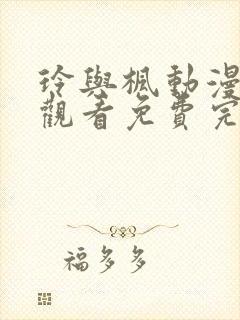 玲與楓動漫
觀看免費完
福多多